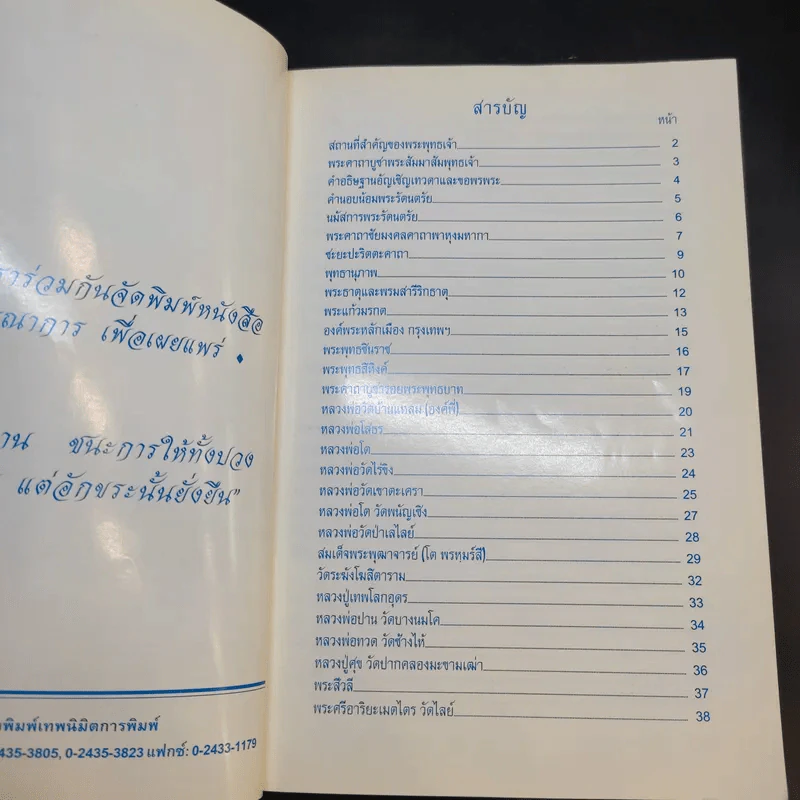 ราร่วมกันจัดพิมพ์หนังสือ
ณาการ เพื่อเผยแพร่
าน ชนะการให้ทั้งปวง
แต่อักขระนั้นยั่งยืน"
พิมพ์เทพนิมิตการพิมพ์
435-3805, 0-2435-3823 แฟกซ์: 0-2433-1179
สารบัญ
หน้า
สถานที่สำคัญของพระพุทธเจ้า 2
พระคาถาบูชาพระสัมมาสัมพุทธเจ้า 3
คำอธิษฐานอัญเชิญเทวดาและขอพรพระ 4
คำนอบน้อมพระรัตนตรัย 5
นมัสการพระรัตนตรัย 6
พระคาถาชัยมงคลคาถาพาหุงมหากา 7
ชะยะปะริตตะคาถา 9
พุทธานุภาพ 10
พระธาตุและพรมสารีริกธาตุ 12
พระแก้วมรกต 13
องค์พระหลักเมือง กรุงเทพฯ 15
พระพุทธชินราช 16
พระพุทธสิหิงค์ 17
พระคาถาบูชารอยพระพุทธบาท 19
หลวงพ่อวัดบ้านแหลม (องค์พี่) 20
หลวงพ่อโสธร 21
หลวงพ่อโต 23
หลวงพ่อวัดไร่ขิง 24
หลวงพ่อวัดเขาตะเครา 25
หลวงพ่อโต วัดพนัญเชิง 27
หลวงพ่อวัดป่าเลไลย์ 28
สมเด็จพระพุฒาจารย์ (โต พรหฺมรํสี) 29
วัดระฆังโฆสิตาราม 32
หลวงปู่เทพโลกอุดร 33
หลวงพ่อปาน วัดบางนมโค 34
หลวงพ่อทวด วัดช้างไห้ 35
หลวงปู่ศุข วัดปากคลองมะขามเฒ่า 36
พระสิวลี 37
พระศรีอาริยะเมตไตร วัดไลย์ 38